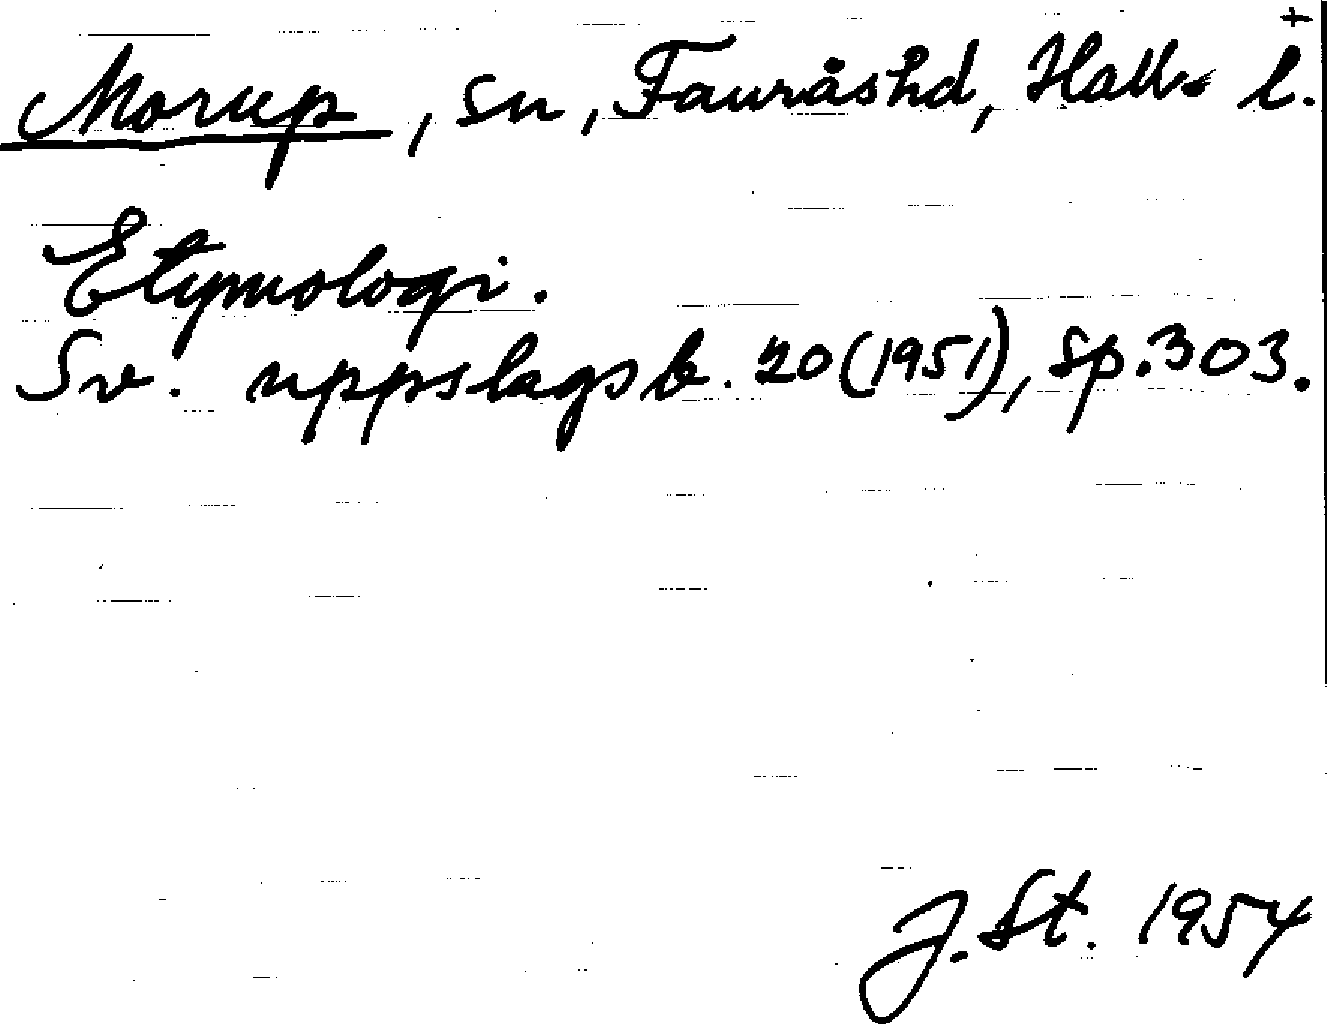 Morup, sn, Fauråshd, Hall. l.
Etymologi.
Sv. uppslagsb. 20 (1951), sp. 303.
J. St. 1954